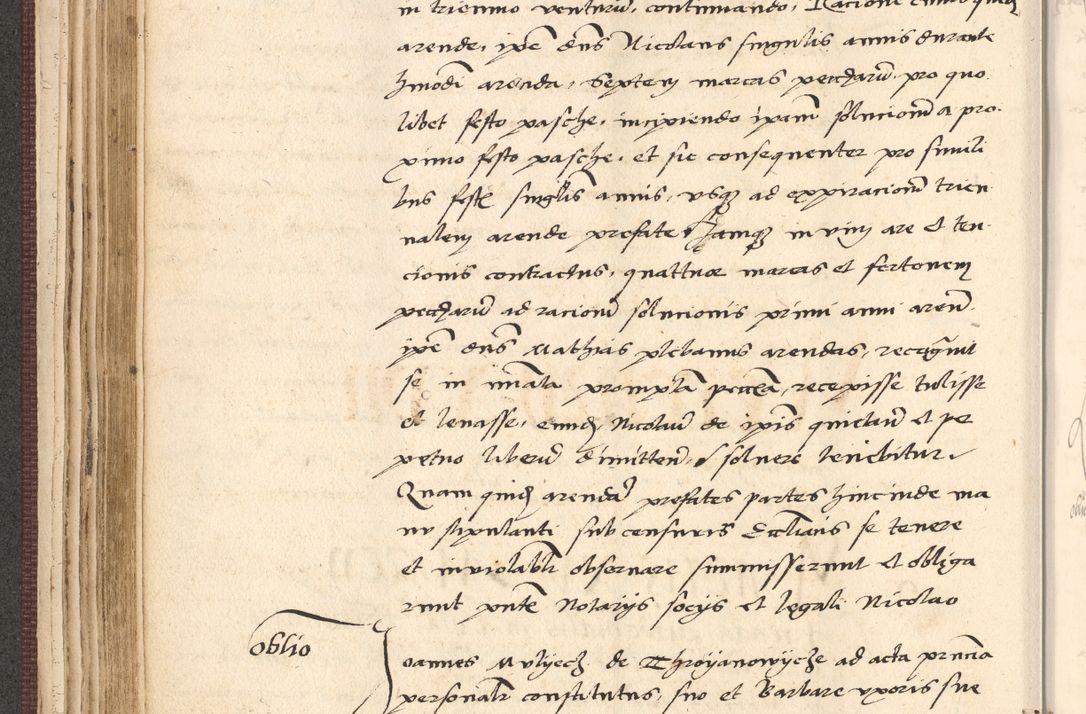 in triennio venturũ, continuando, Racione cuius quidẽ
arende, ipẽ dñs Nicolaus singulis annis durante
hmõdi arenda, septem marcas peccharũ, pro quo
libet festo pasche, incipiendo ipam̃ soluciom̃ a pro
ximo festo pasche, et sic consequenter pro simili
bus fest singlis annis, vsq ad expiraciom̃ trien
nalem arende prefate, Jamq in vim are et ten
cionis contractus, quattuor marcas et fertonem
peccharũ ad racionẽ solucionis primi anni areñ.
ipẽ dñs Mathias plebanus arendas, recognuit
se in
et leuasse, eundẽ Nicolaũ de ipis quictaũ et pe
petuo liberũ dimitteñ, soluere tenebitur.
Quam quidẽ arendã prefates partes hincinde ma
nu stipulanti sub censuris Ecclíacis se tenere
et inuiolabli obseruare summisserunt et obliga
runt pñte Notarijs socijs et legali Nicolao
oblio
Joannes Mulyech de Throyanowycze ad acta pñcia
personalr constitutus, suo et Barbare vxoris sue